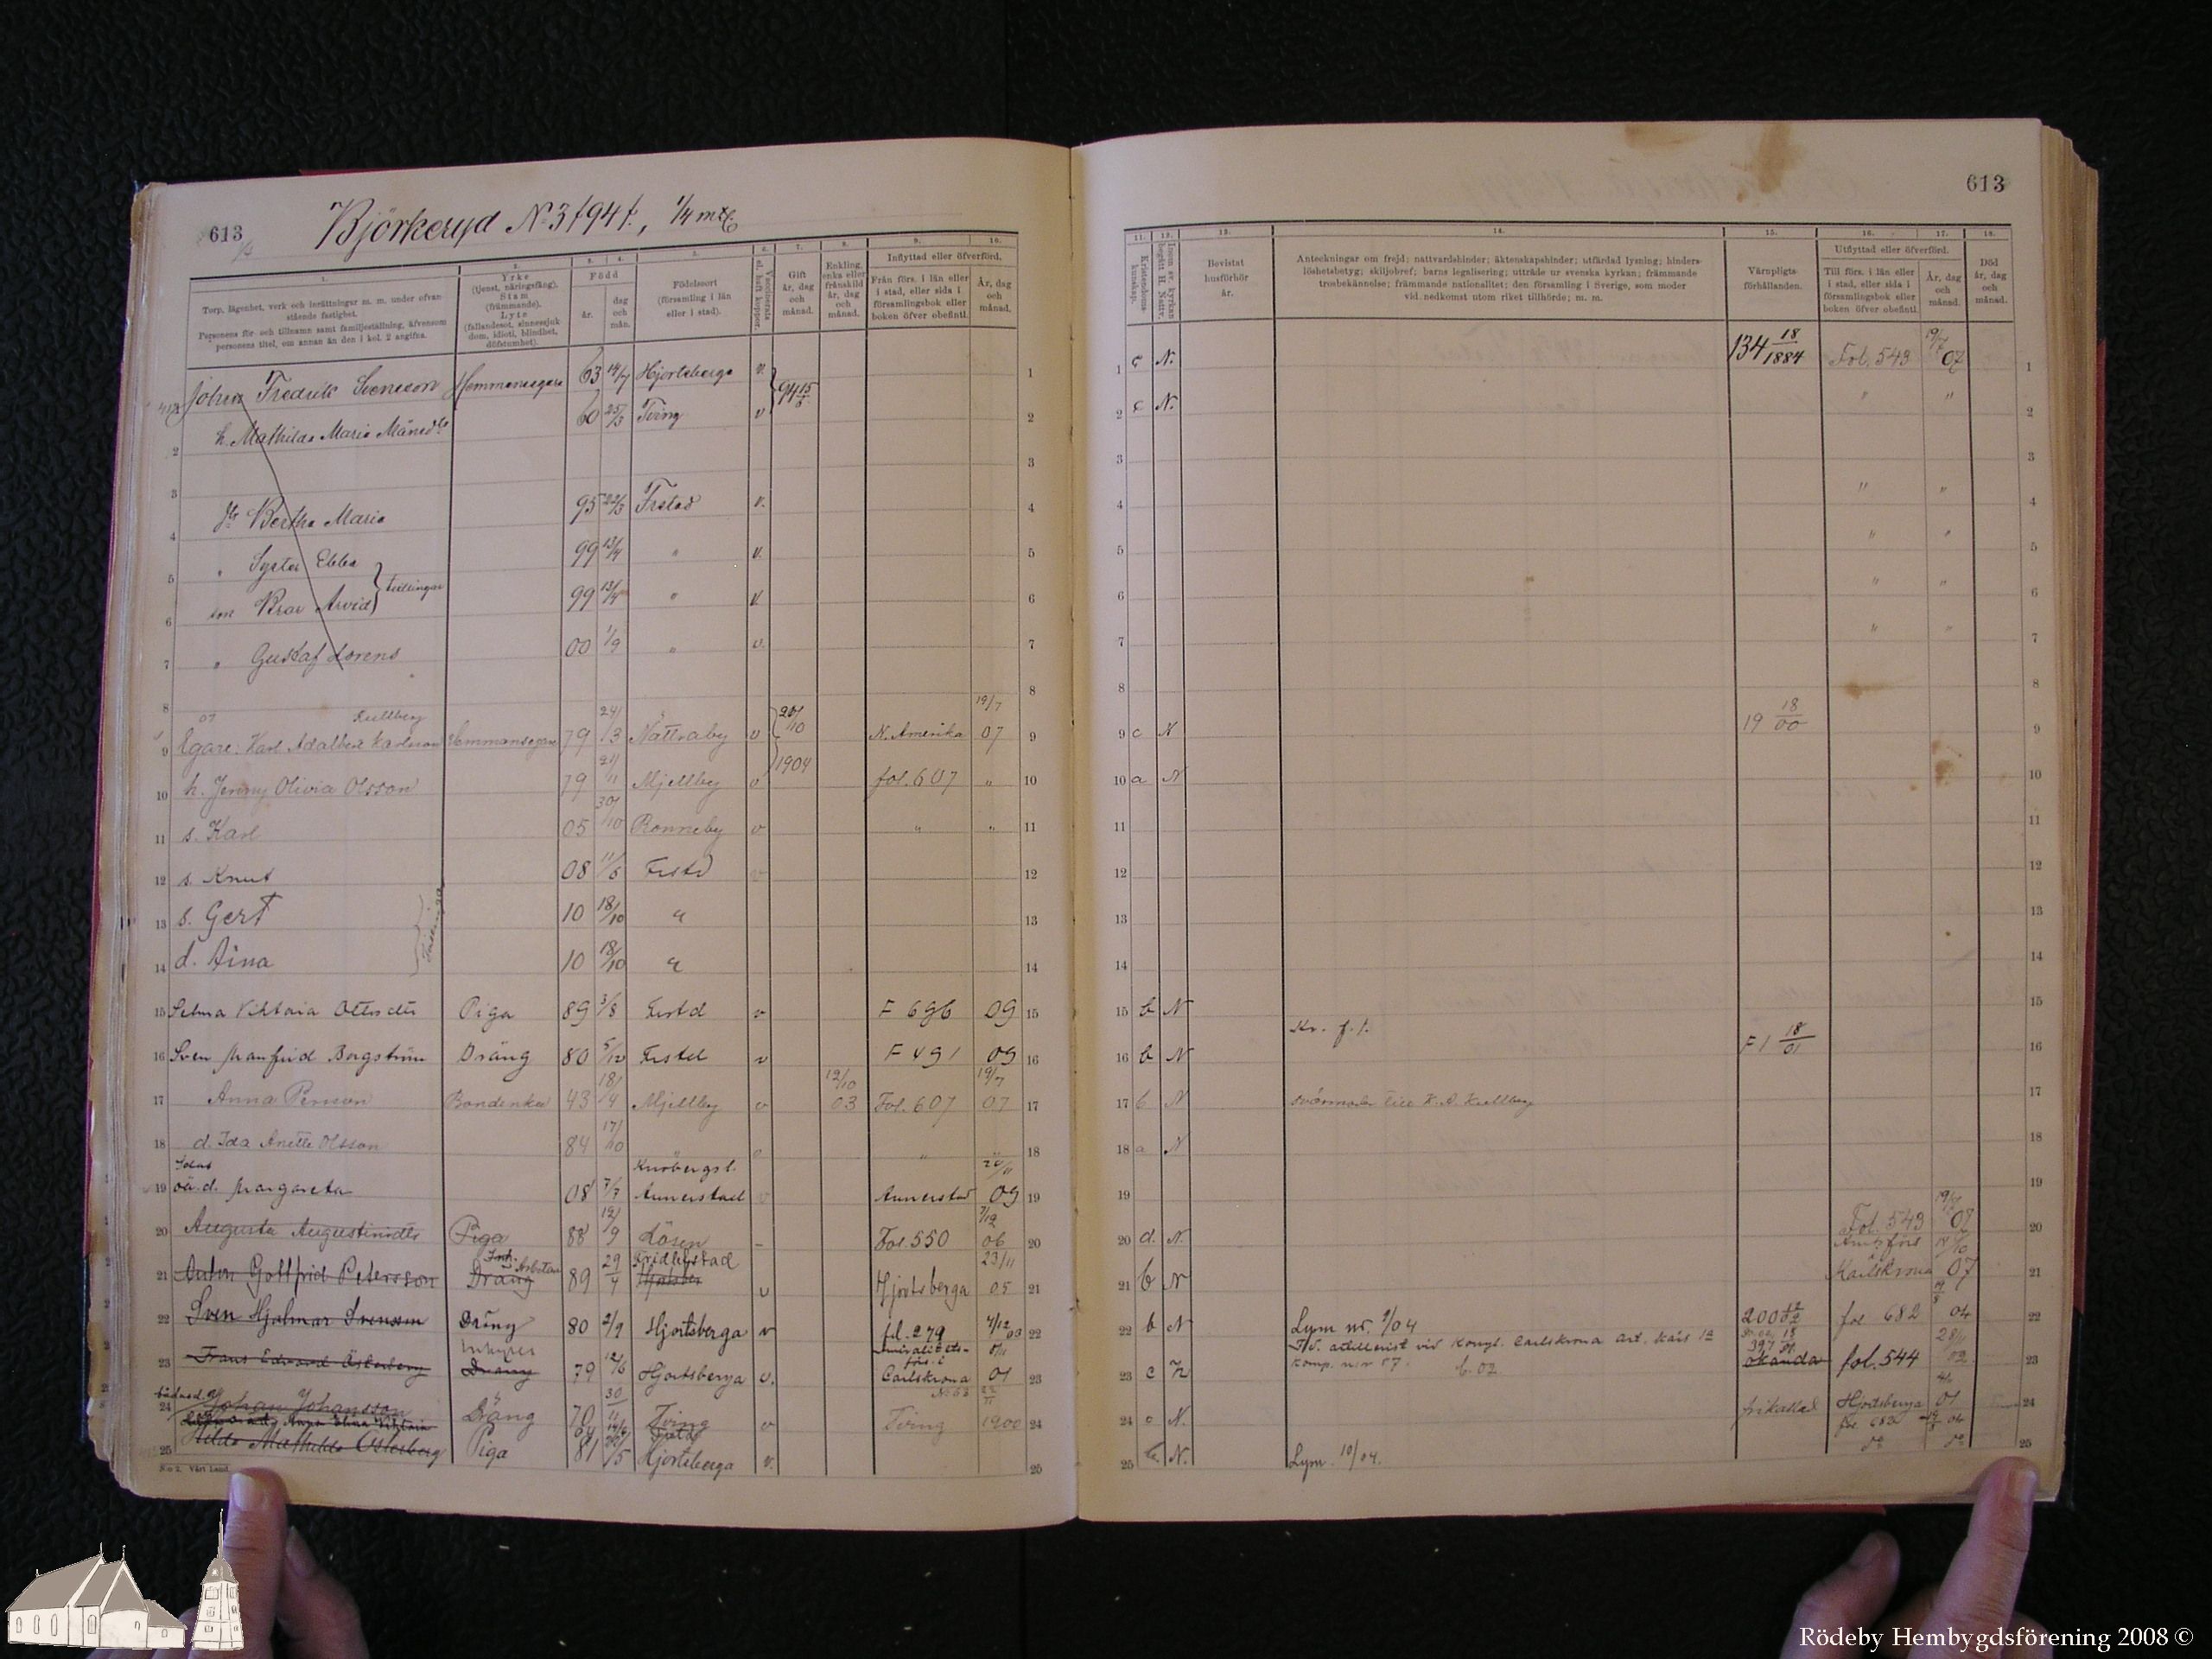 613
Björkeryd No 3 & 4, 1/4 mtl
613
1. 2. 3. 4. 5. 6. 7. 8. 9. 10.
Torp, lägenhet, verk och inrättningar m. m. under ofvanstående fastighet.
Personens för- och tillnamn samt familjeställning, äfvensom personens titel, om annan än den i kol. 2 angifna.
Yrke (tjenst, näringsfång), Stam (främmande), Lyte (fallandesot, sinnessjukdom, idioti, blindhet, döfstumhet).
Född
år.
dag och mån.
Födelseort (församling i län eller i stad).
Gift år, dag och månad.
Enkling, enka eller frånskild år, dag och månad.
Inflyttad eller öfverförd.
Från förs. i län eller i stad, eller sida i församlingsbok eller boken öfver obefintl.
År, dag och månad.
11. 12. 13. 14. 15. 16. 17. 18.
Kristendomskunskap.
Bevistat husförhör år.
Anteckningar om frejd; nattvardshinder; äktenskapshinder; utfärdad lysning; hinderslöshetsbetyg; skiljobref; barns legalisering; utträde ur svenska kyrkan; främmande trosbekännelse; främmande nationalitet; den församling i Sverige, som moder vid nedkomst utom riket tillhörde; m. m.
Värnpligtsförhållanden.
Utflyttad eller öfverförd.
Till förs. i län eller i stad, eller sida i församlingsbok eller boken öfver obefintl.
År, dag och månad.
Död år, dag och månad.
Johan Fredrik Svensson Hemmansegare 63 14/7 Hjortsberga v. 94 15/6 1 c N. 134 18/1884 Fol. 543 19/7 07
2 h. Mathilda Maria Månsdtr 60 25/3 Tving v 2 c N. " "
3
4 dtr Bertha Maria 95 22/3 Frstad v. 4 " "
5 " Syster Ebba 99 13/4 " v. 5 " "
tvillingar
6 son Bror Arvid 99 13/4 " v 6 " "
7 " Gustaf Lorens 00 1/9 " v. 7 " "
8
07 Kullberg
9 Egare: Karl Adalbert Karlsson Hemmansegare 79 24/3 Nättraby v 29/10 1904 N. Amerika 19/7 07 9 c N 19 18/00
10 h. Jenny Olivia Olsson 79 21/11 Mjellby v fol. 607 " 10 a N
11 s. Karl 05 30/10 Ronneby v " " 11
12 s. Knut 08 11/6 Frstd 12
13 s. Gert 10 18/10 " 13
Tvillingar
14 d. Aina 10 18/10 " 14
15 Selma Viktoria Ottosdtr Piga 89 3/8 Frstd v F 696 09 15 b N
16 Sven Manfrid Bergström Dräng 80 5/12 Frstd v F 491 09 16 b N Kr. f. l. F 1 18/01
17 Anna Persson Bondenka 43 18/4 Mjellby v 12/10 03 Fol. 607 19/7 07 17 b N svärmoder till K. A. Kullberg
18 d. Ida Anette Olsson 84 17/10 " " " 18 a N
19 oä. d. Margareta 08 7/7 Kronbergs l. Annerstad Annerstad 20/11 09 19
20 Augusta Augustinidtr Piga 88 12/9 Lösen Fol. 550 7/12 06 20 d. N. Fol. 549 19/7 07
21 Anton Gottfrid Petersson Dräng Arbetare 89 29/4 Fridlevstad Hjortsberga v Hjortsberga 23/11 05 21 b N Karlskrona 07
22 Sven Hjalmar Svensson Dräng 80 2/9 Hjortsberga v fol. 279 4/12 03 22 b N Lysn nr. 9/04 fol 682 04
23 Frans Edvard Österberg Inhyses Dräng 79 12/6 Hjortsberga v. Amiralitetsförs. i Carlskrona 01 23 c N F. d. artillerist vid Kongl. Carlskrona art. kårs 1a komp. n:r 57. b. 02 okända fol. 544 02
24 Johan Johansson Dräng 70 30/11 Tving v Tving 1900 24 c N. frikallad Hjortsberga 01
Anna Elina Viktoria fol 682 04
25 Hilda Mathilda Österberg Piga 81 /5 Hjortsberga v. 25 N. Lysn. 10/04. do do
No 2. Vårt Land
Rödeby Hembygdsförening 2008 ©